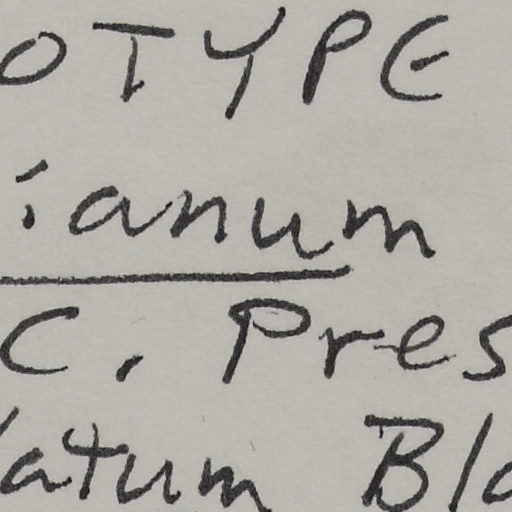 OTYPE
ianum
C. Pres
latum Bla